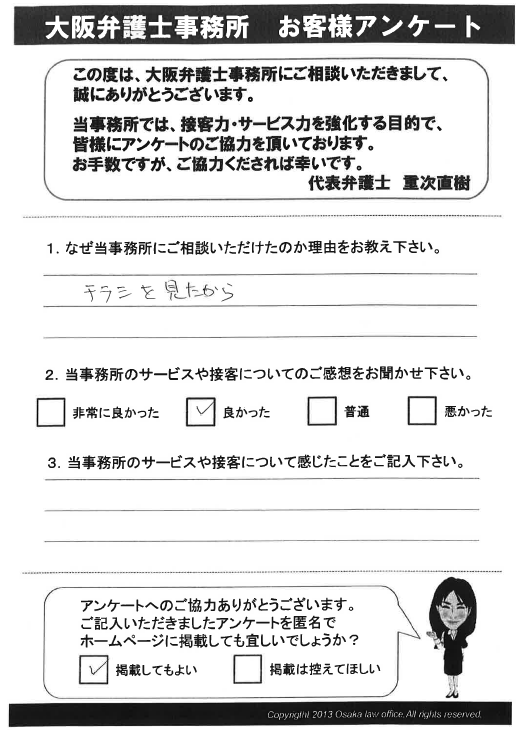 大阪弁護士事務所 お客様アンケート
この度は、大阪弁護士事務所にご相談いただきまして、
誠にありがとうございます。
当事務所では、接客力・サービス力を強化する目的で、
皆様にアンケートのご協力を頂いております。
お手数ですが、ご協力くだされば幸いです。
代表弁護士 重次直樹
1. なぜ当事務所にご相談いただけたのか理由をお教え下さい。
チラシを見たから
2. 当事務所のサービスや接客についてのご感想をお聞かせ下さい。
非常に良かった ✓ 良かった 普通 悪かった
3. 当事務所のサービスや接客について感じたことをご記入下さい。
アンケートへのご協力ありがとうございます。
ご記入いただきましたアンケートを匿名で
ホームページに掲載しても宜しいでしょうか？
✓ 掲載してもよい 掲載は控えてほしい
Copyright 2013 Osaka law office,All rights reserved.